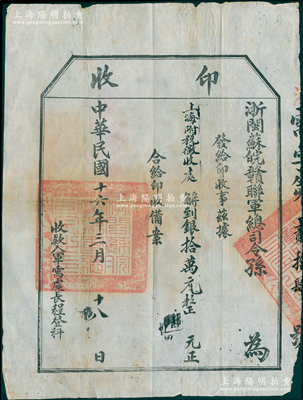 上海陽明拍賣
www.yangmingauction.com
收 印
浙閩蘇皖贛聯軍總司令孫 為
發給印收事茲據
上海附稅徵收處 解到銀拾萬元整 元正
合給印收備案
中華民國十六年二月十八日
收款人軍需處長程登科
上海陽明拍賣